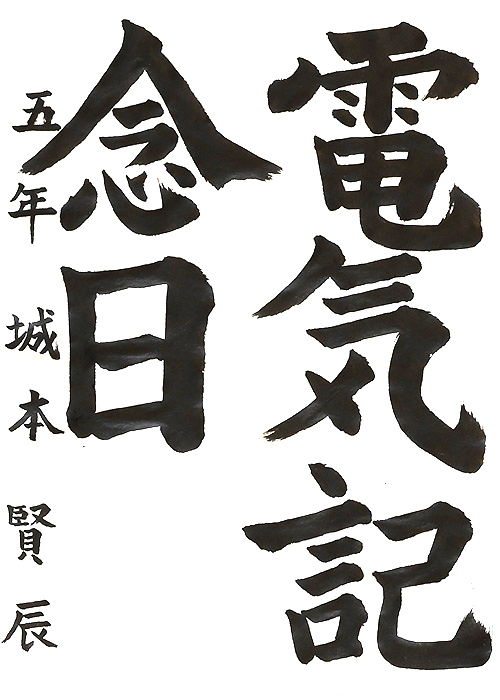 電気記
念日
五年 城本 賢辰